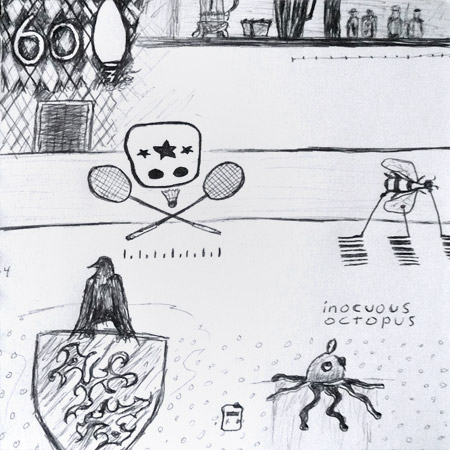 60
4
inocuous
octopus